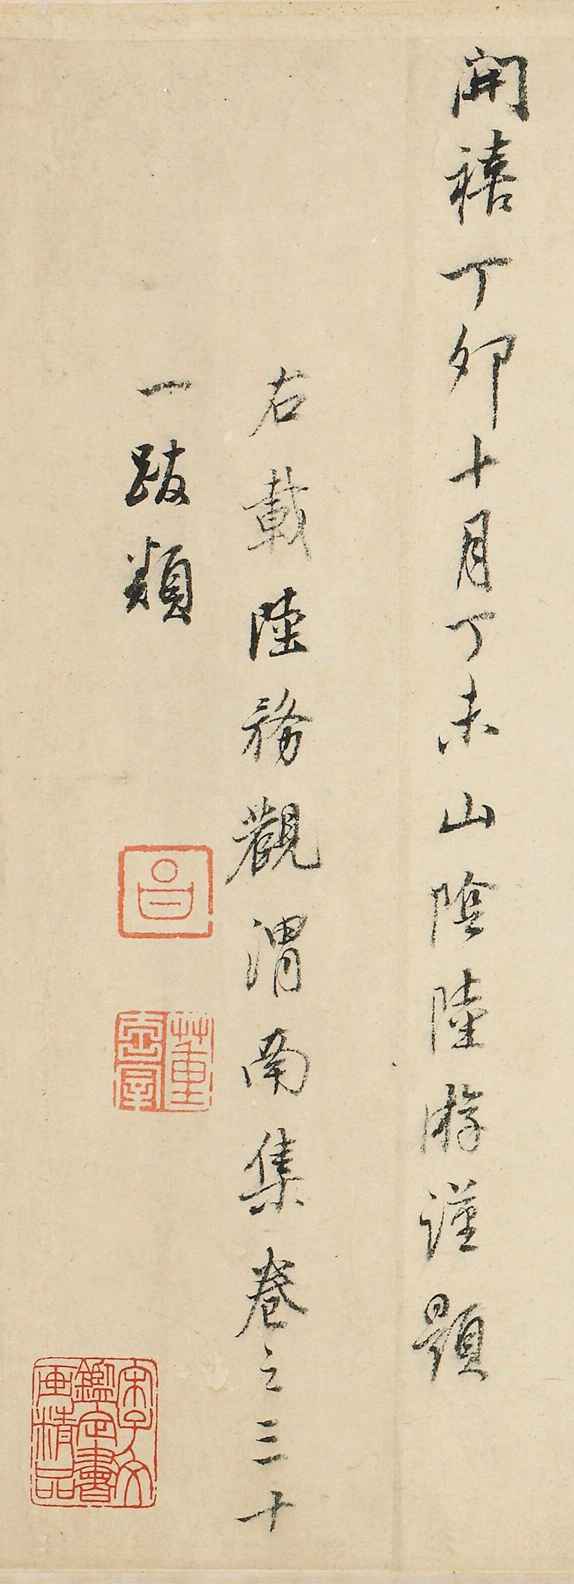 開禧丁卯十月丁未山陰陸游謹題
右載陸務觀渭南集卷之三十
一跋類
昌
董
宋子文
鑑定書
画精品